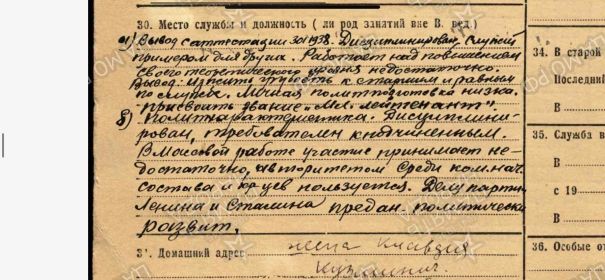 30. Место службы и должность ( ли род занятий вне В. вед.)
а) Вывод с аттестации за 1938. Дисциплинирован, служит
примером для других. Работает над повышением
своего теоретического уровня недостаточно.
Вывод: к старшим и равным
по службе. Личная политподготовка низка.
присвоить звание „Мл. лейтенант".
Политхарактеристика. Дисципли-
рован, требователен к подчиненным.
В массовой работе участие принимает не-
достаточно, авторитетом среди ком. нач.
состава и кр-цев пользуется. Делу партии
Ленина и Сталина предан. политически
развит.
Домашний адрес жена Клавдия
34. В старой
Последний
35. Служба в
В
с 19
В
36. Особые от